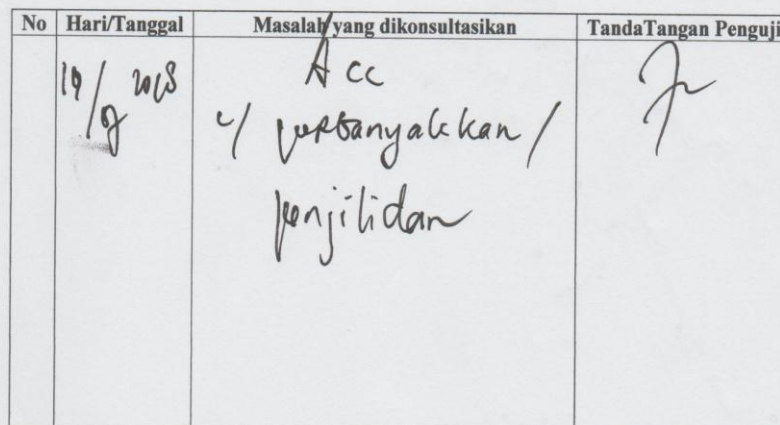 No Hari/Tanggal Masalah yang dikonsultasikan TandaTangan Penguji
Acc
2018
u/ perbanyakkan /
penjilidan